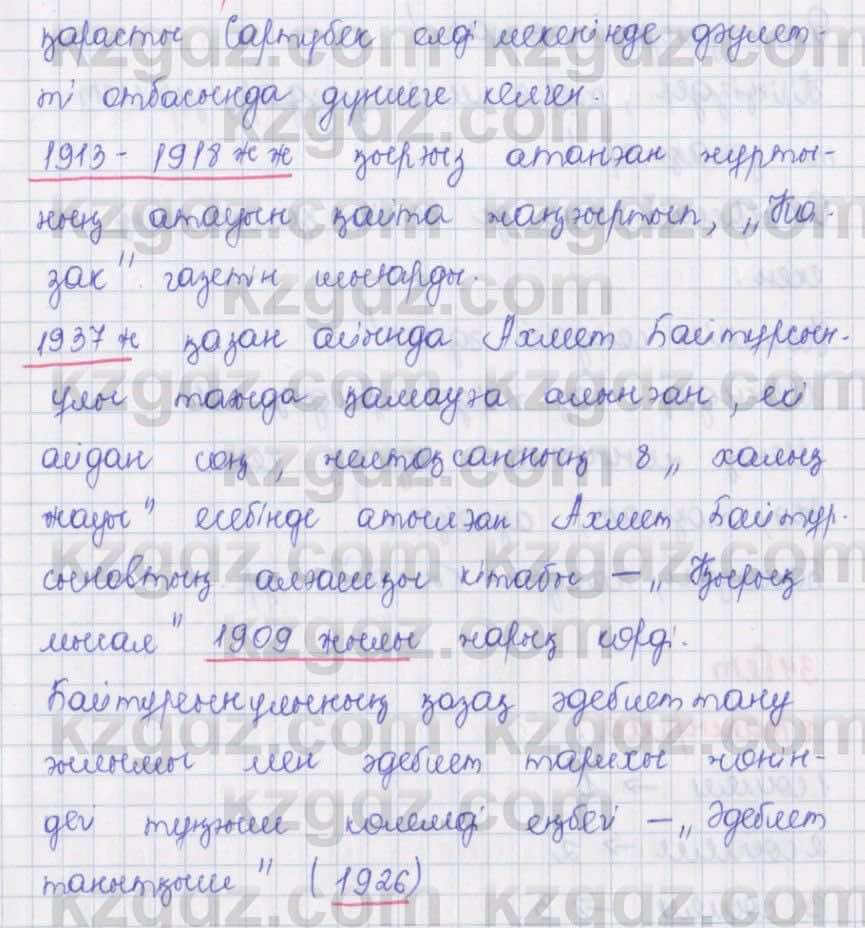 қарасты Сартүбек елді мекенінде дәулет-
ті отбасында дүниеге келген.
1913 - 1918 жж қырғыз атанған жұрты-
ның атауын қайта жаңғыртып, „Қа-
зақ" газетін шығарды.
1937 ж қазан айында Ахмет Байтұрсын-
ұлы тағыда қамауға алынған, екі
айдан соң, желтоқсанның 8 „ халық
жауы" есебінде атылған Ахмет Байтұр-
сыновтың алғашқы кітабы — „ Қырық
мысал" 1909 жылы жарық көрді.
Байтұрсынұлының қазақ әдебиеттану
ғылымы мен әдебиет тарихы жөнін-
дегі тұңғыш көлемді еңбегі — „ Әдебиет
танытқыш" (1926)
kzgdz.com